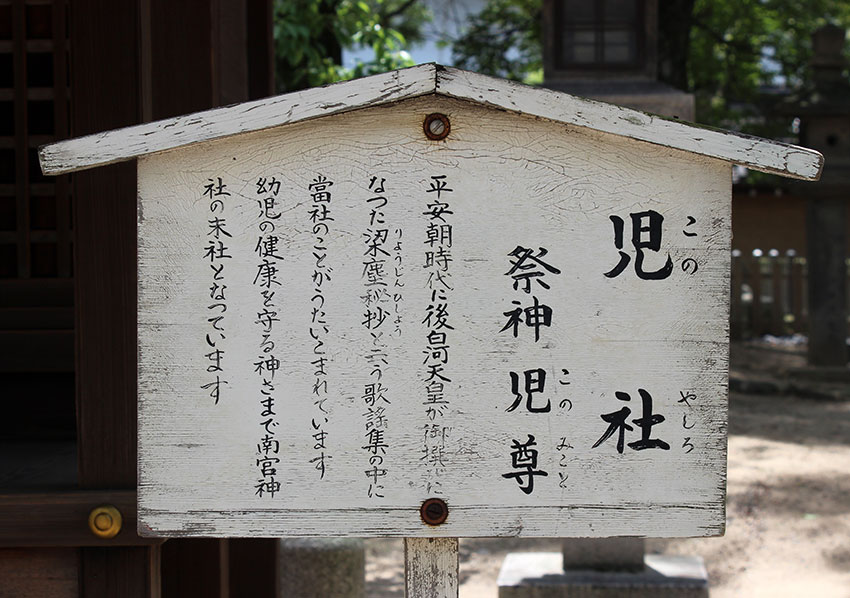 児社
このやしろ
祭神 児尊
このみこと
平安朝時代に後白河天皇が御撰に
なつた梁塵秘抄と云う歌謡集の中に
りようじんひしよう
當社のことがうたいこまれています
幼児の健康を守る神さまで南宮神
社の末社となつています